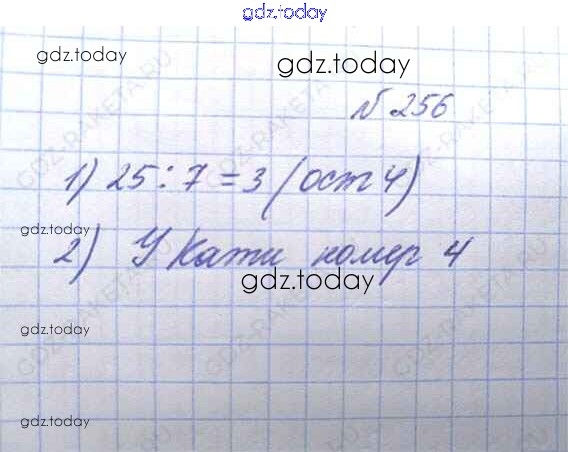 gdz.today
gdz.today
gdz.today
№ 256
1) 25 : 7 = 3 (ост 4)
gdz.today
2) Укажи номер 4
gdz.today
gdz.today
gdz.today
GDZ-RAKETA.RU